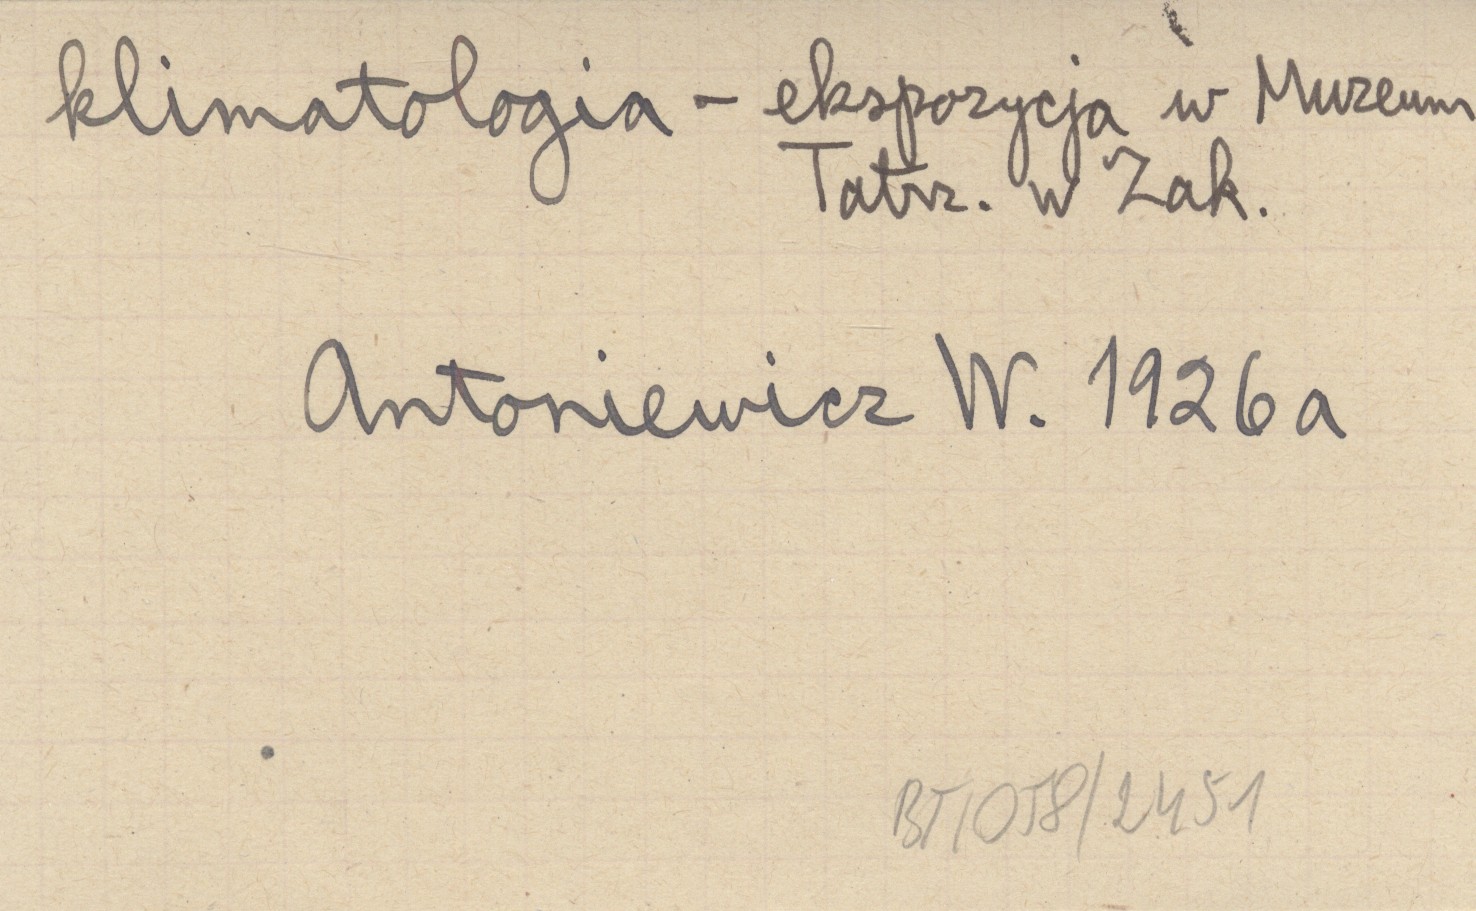 klimatologia - ekspozycja w Muzeum
Tatrz. w Zak.
Antoniewicz W. 1926a
BT/058/2451